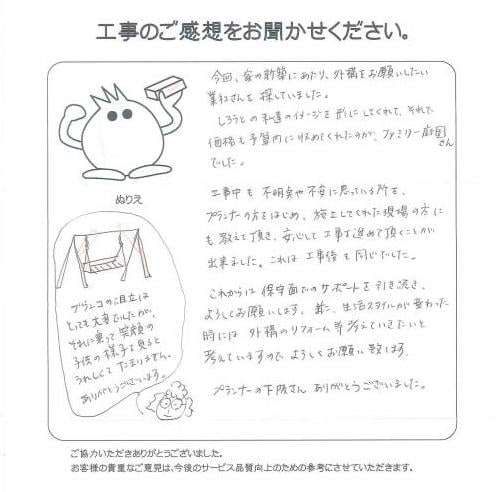 工事のご感想をお聞かせください。
今回、家の新築にあたり、外構をお願いしたい
業社さんを探していました。
しろうとの私達のイメージを形にしてくれて、それで
価格も予算内に収めてくれたのが、ファミリー庭園さん
でした。
工事中も不明点や不安に思っている所を、
プランナーの方をはじめ、施工してくれた現場の方に
も教えて頂き、安心して工事を進めて頂くことが
出来ました。これは工事後も同じでした。
これからは保守面でのサポートを引き続き、
よろしくお願いします。又、生活スタイルが変わった
時には外構のリフォーム等考えていきたいと
考えていますので、よろしくお願い致します。
プランナーの下阪さんありがとうございました。
ぬりえ
ブランコの組立は
とても大変でしたが、
それに乗って笑顔の
子供の様子を見ると
うれしくてたまりません。
ありがとうございます。
ご協力いただきありがとうございました。
お客様の貴重なご意見は、今後のサービス品質向上のための参考にさせていただきます。